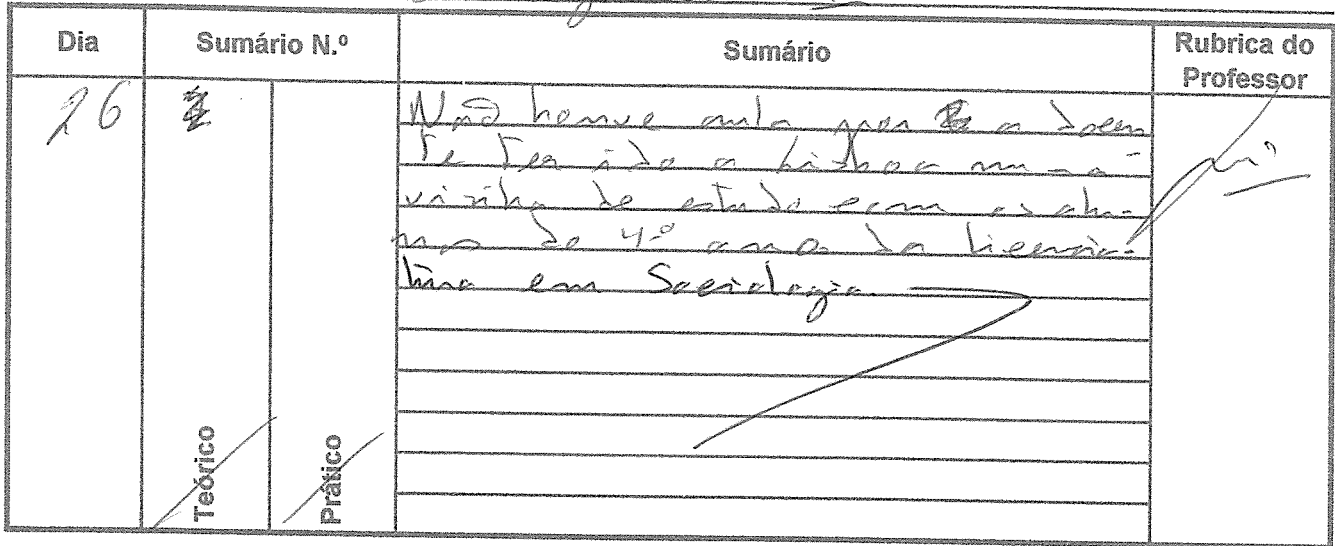 Dia
Sumário N.º
Sumário
Rubrica do
Professor
26
Não houve aula por a docen
te ter ido a Lisboa numa
visita de estudo com os alu-
nos do 4º ano da licencia-
tura em Sociologia
Teórico
Prático